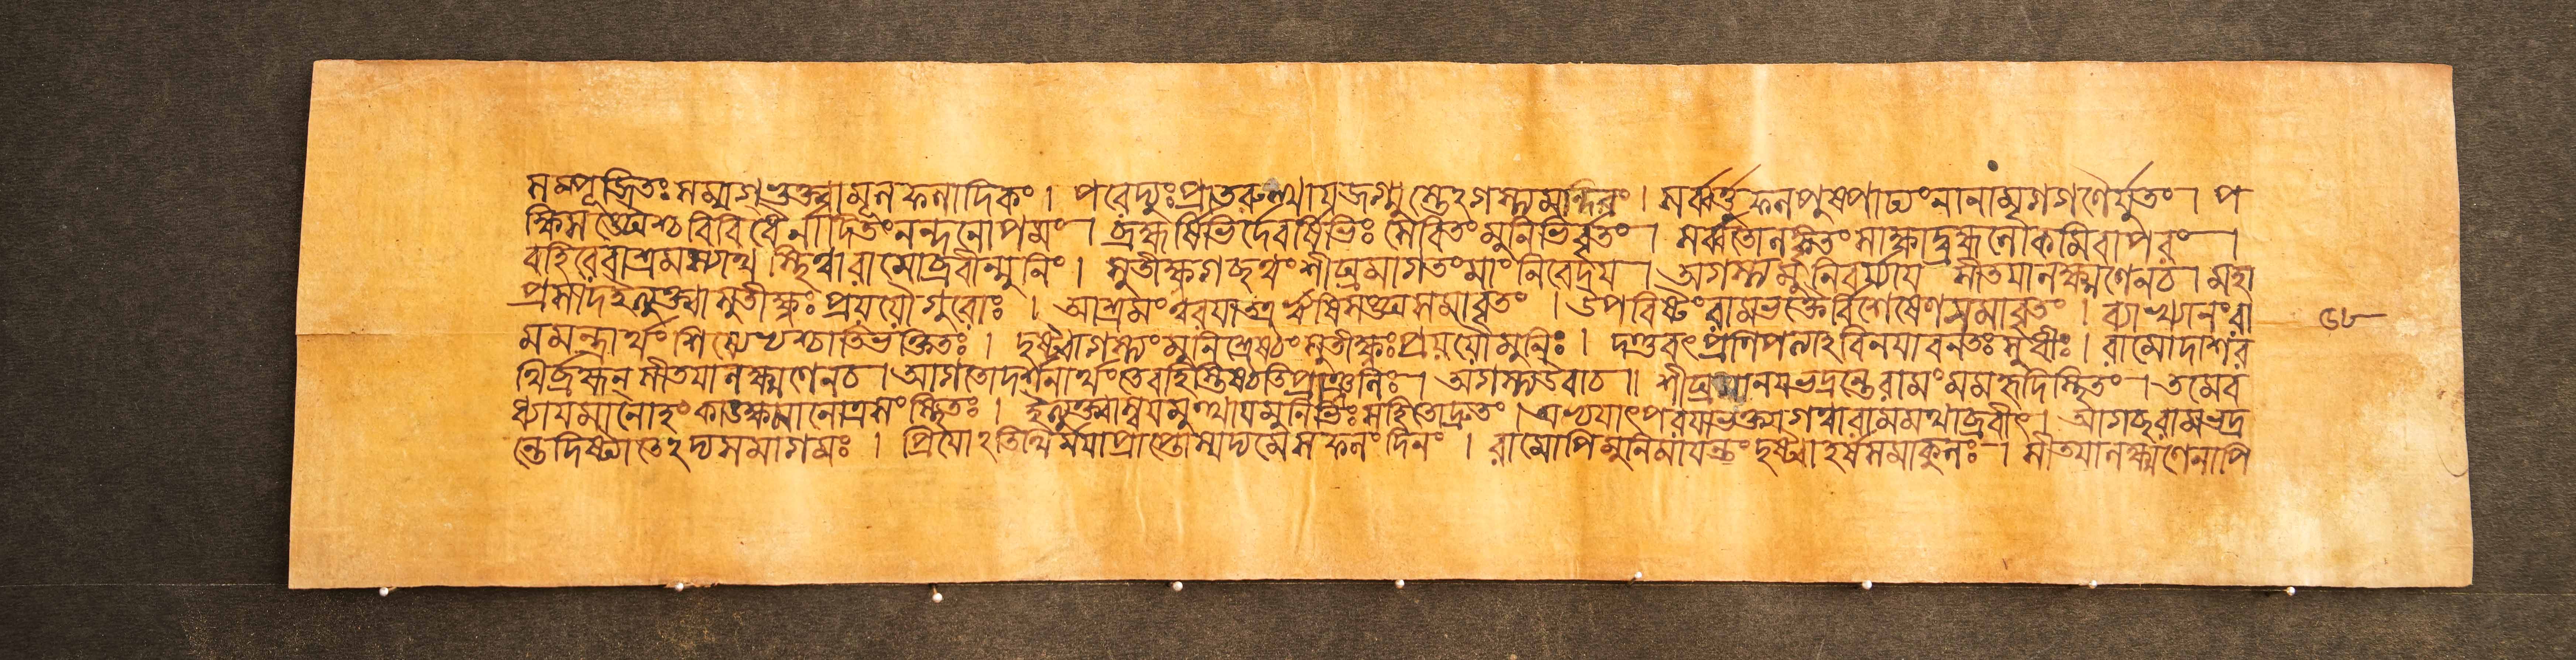 সম্পূজিতঃ সম্যগ্ ভুক্ত্বা মূলফলাদিকং । পরেদ্যুঃ প্রাতরুত্থায় জগ্মুস্তেঽগস্ত্যমন্দিরং । সর্ব্বর্ত্তুফলপুষ্পাঢ্যং নানামৃগগণৈর্যুতং । প
ক্ষিসঙ্ঘৈশ্চ বিবিধৈর্নাদিতং নন্দনোপমং । ব্রহ্মর্ষিভির্দেবর্ষিভিঃ সেবিতং মুনিভির্বৃতং । সর্ব্বতোলঙ্কৃতং সাক্ষাদ্ব্রহ্মলোকমিবাপরং ।
বহিরেবাশ্রমস্যাথ স্থিত্বা রামোব্রবীন্মুনিং । সুতীক্ষ্ণ গচ্ছ ত্বং শীঘ্রমাগতং মাং নিবেদয় । অগস্ত্যমুনিবর্য্যায় সীতয়া লক্ষ্মণেন চ । মহা
প্রসাদ ইত্যুক্ত্বা সুতীক্ষ্ণঃ প্রয়যৌ গুরোঃ । আশ্রমং ত্বরয়া তত্র ঋষিসঙ্ঘসমাবৃতং । উপবিষ্টং রামভক্তৈর্বিশেষেণ সমাবৃতং । ব্যাখ্যানং রা
মমন্ত্রার্থং শিষ্যেভ্যশ্চাতিভক্তিতঃ । দৃষ্ট্বাগস্ত্যং মুনিশ্রেষ্ঠং সুতীক্ষ্ণঃ প্রয়যৌ মুনিঃ । দণ্ডবৎ প্রণিপত্যাহ বিনয়াবনতঃ সুধীঃ । রামো দাশর
থির্ব্রহ্মন্ সীতয়া লক্ষ্মণেন চ । আগতো দর্শনার্থং তে বহিস্তিষ্ঠতি প্রাঞ্জলিঃ । অগস্ত্য উবাচ ॥ শীঘ্রমানয় ভদ্রন্তে রামং মম হৃদি স্থিতং । তমেব
ধ্যায়মানোহং কাঙ্ক্ষমানোত্র সংস্থিতঃ । ইত্যুক্ত্বা স্বয়মুত্থায় মুনিভিঃ সহিতো দ্রুতং । অভ্যয়াৎ পরয়া ভক্ত্যা গত্বা রামমথাব্রবীৎ । আগচ্ছ রাম ভদ্র
ন্তে দিষ্ট্যা তেঽদ্য সমাগমঃ । প্রিয়োঽতিথির্ময়া প্রাপ্তোস্ম্যদ্য মে সফলং দিনং । রামোপি মুনিমায়ন্তং দৃষ্ট্বা হর্ষসমাকুলঃ । সীতয়া লক্ষ্মণেনাপি
৬৮